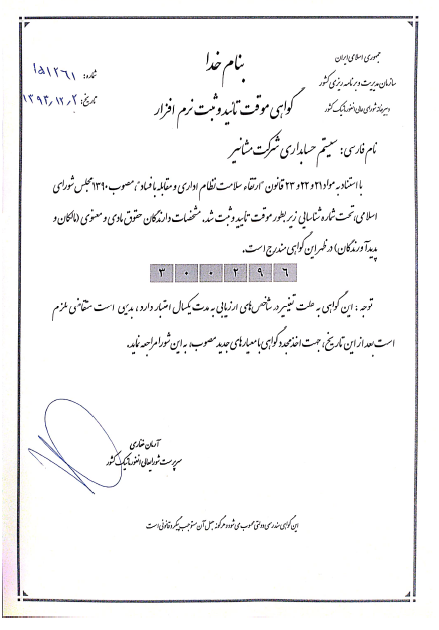 بنام خدا
جمهوری اسلامی ایران
سازمان مدیریت و برنامه ریزی کشور
دبیرخانه شورای عالی انفورماتیک کشور
شماره: ۱۵۱۲۶۱
تاریخ: ۱۳۹۳/۱۲/۲
گواهی موقت تائید و ثبت نرم افزار
نام فارسی: سیستم حسابداری شرکت مشانیر
با استناد به مواد ۲۱ و ۲۲ و ۲۳ قانون "ارتقاء سلامت نظام اداری و مقابله با فساد"، مصوب ۱۳۹۰ مجلس شورای
اسلامی، تحت شماره شناسایی زیر بطور موقت تایید و ثبت شد. مشخصات دارندگان حقوق مادی و معنوی (مالکان و
پدیدآورندگان) در ظهر این گواهی مندرج است.
۳۰۰۲۹۶
توجه: این گواهی به علت تغییر در شاخص های ارزیابی به مدت یکسال اعتبار دارد، بدیهی است متقاضی ملزم
است بعد از این تاریخ، جهت اخذ مجدد گواهی با معیارهای جدید مصوب، به این شورا مراجعه نماید.
آرمان غفاری
سرپرست شورایعالی انفورماتیک کشور
این گواهی سندرسمی دولتی محسوب می شود و هرگونه جعل آن مستوجب پیگرد قانونی است